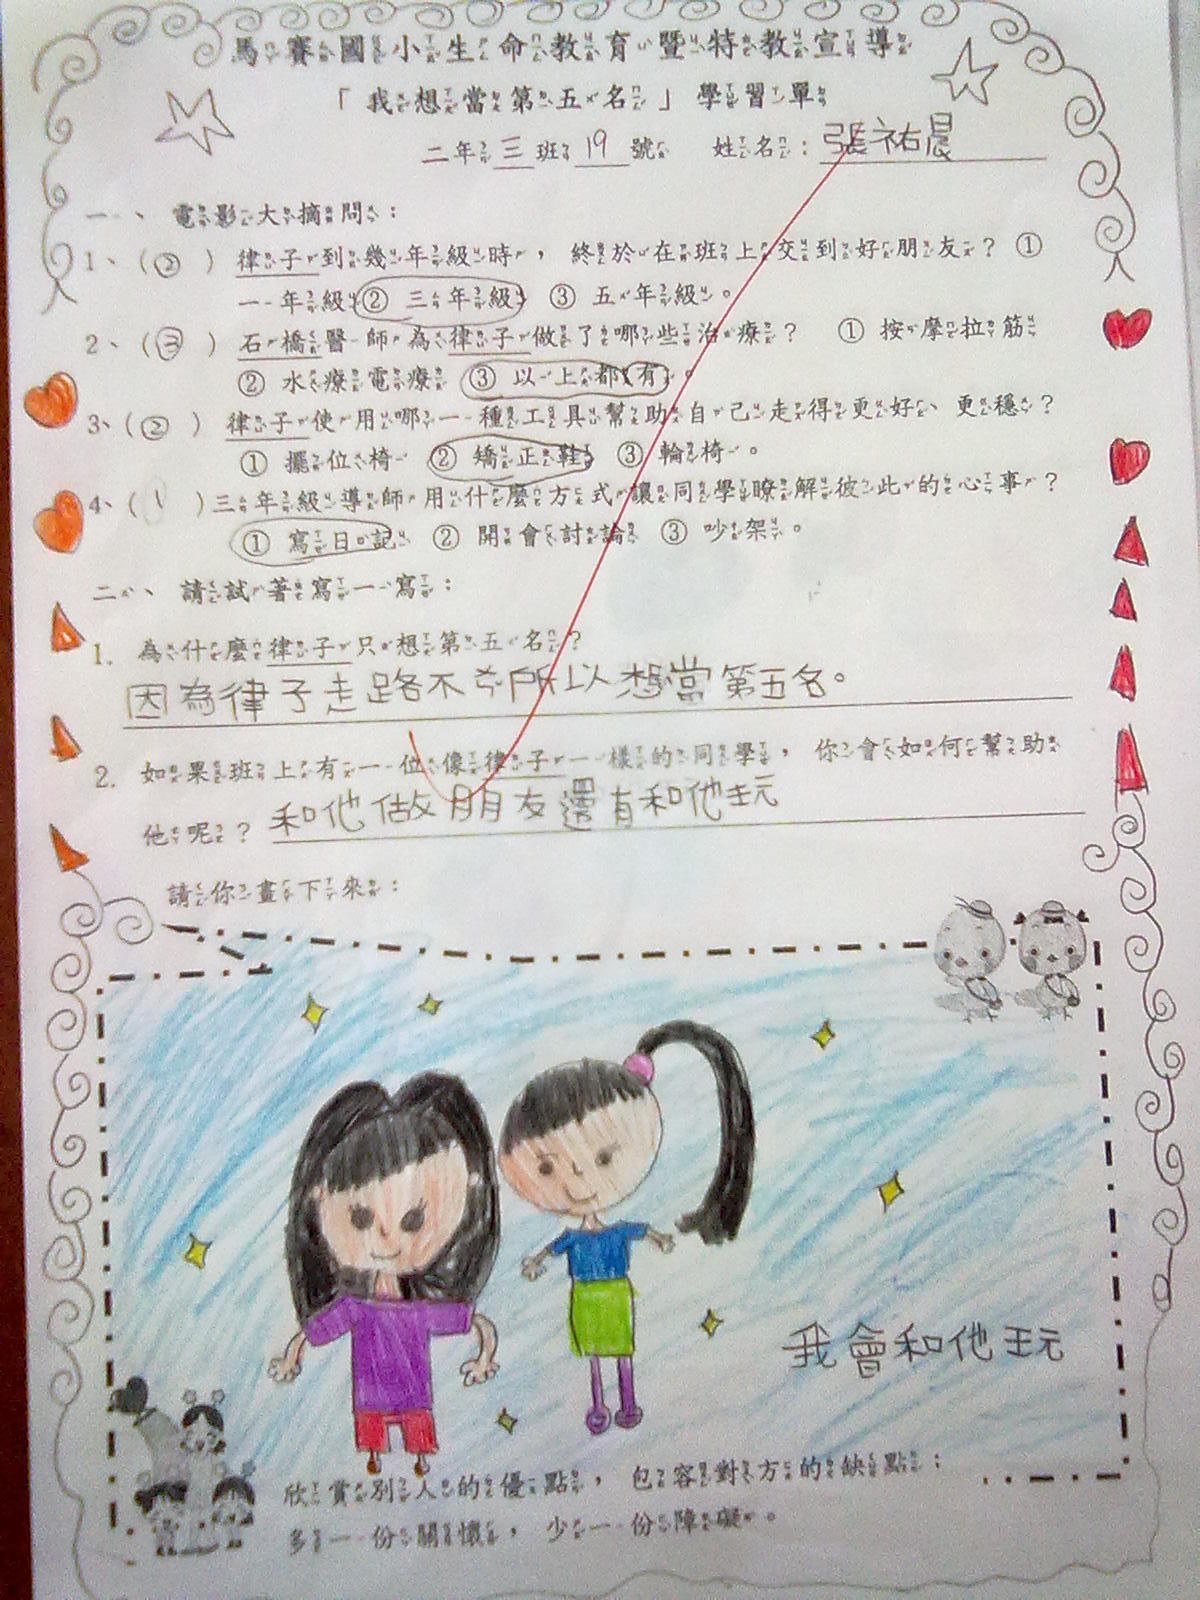 馬賽國小生命教育暨特教宣導
「我想當第五名」學習單
二年三班19號 姓名：張祐晨
一、電影大摘問：
1、(②) 律子到幾年級時，終於在班上交到好朋友？①
一年級 ② 三年級 ③ 五年級。
2、(③) 石橋醫師為律子做了哪些治療？ ① 按摩拉筋
② 水療電療 ③ 以上都有。
3、(②) 律子使用哪一種工具幫助自己走得更好、更穩？
① 擺位椅 ② 矯正鞋 ③ 輪椅。
4、(1) 三年級導師用什麼方式讓同學瞭解彼此的心事？
① 寫日記 ② 開會討論 ③ 吵架。
二、請試著寫一寫：
1. 為什麼律子只想第五名？
因為律子走路不ㄘㄤˊ所以想當第五名。
2. 如果班上有一位像律子一樣的同學，你會如何幫助
他呢？ 和他做朋友還有和他玩
請你畫下來：
我會和他玩
欣賞別人的優點，包容對方的缺點；
多一份關懷，少一份障礙。